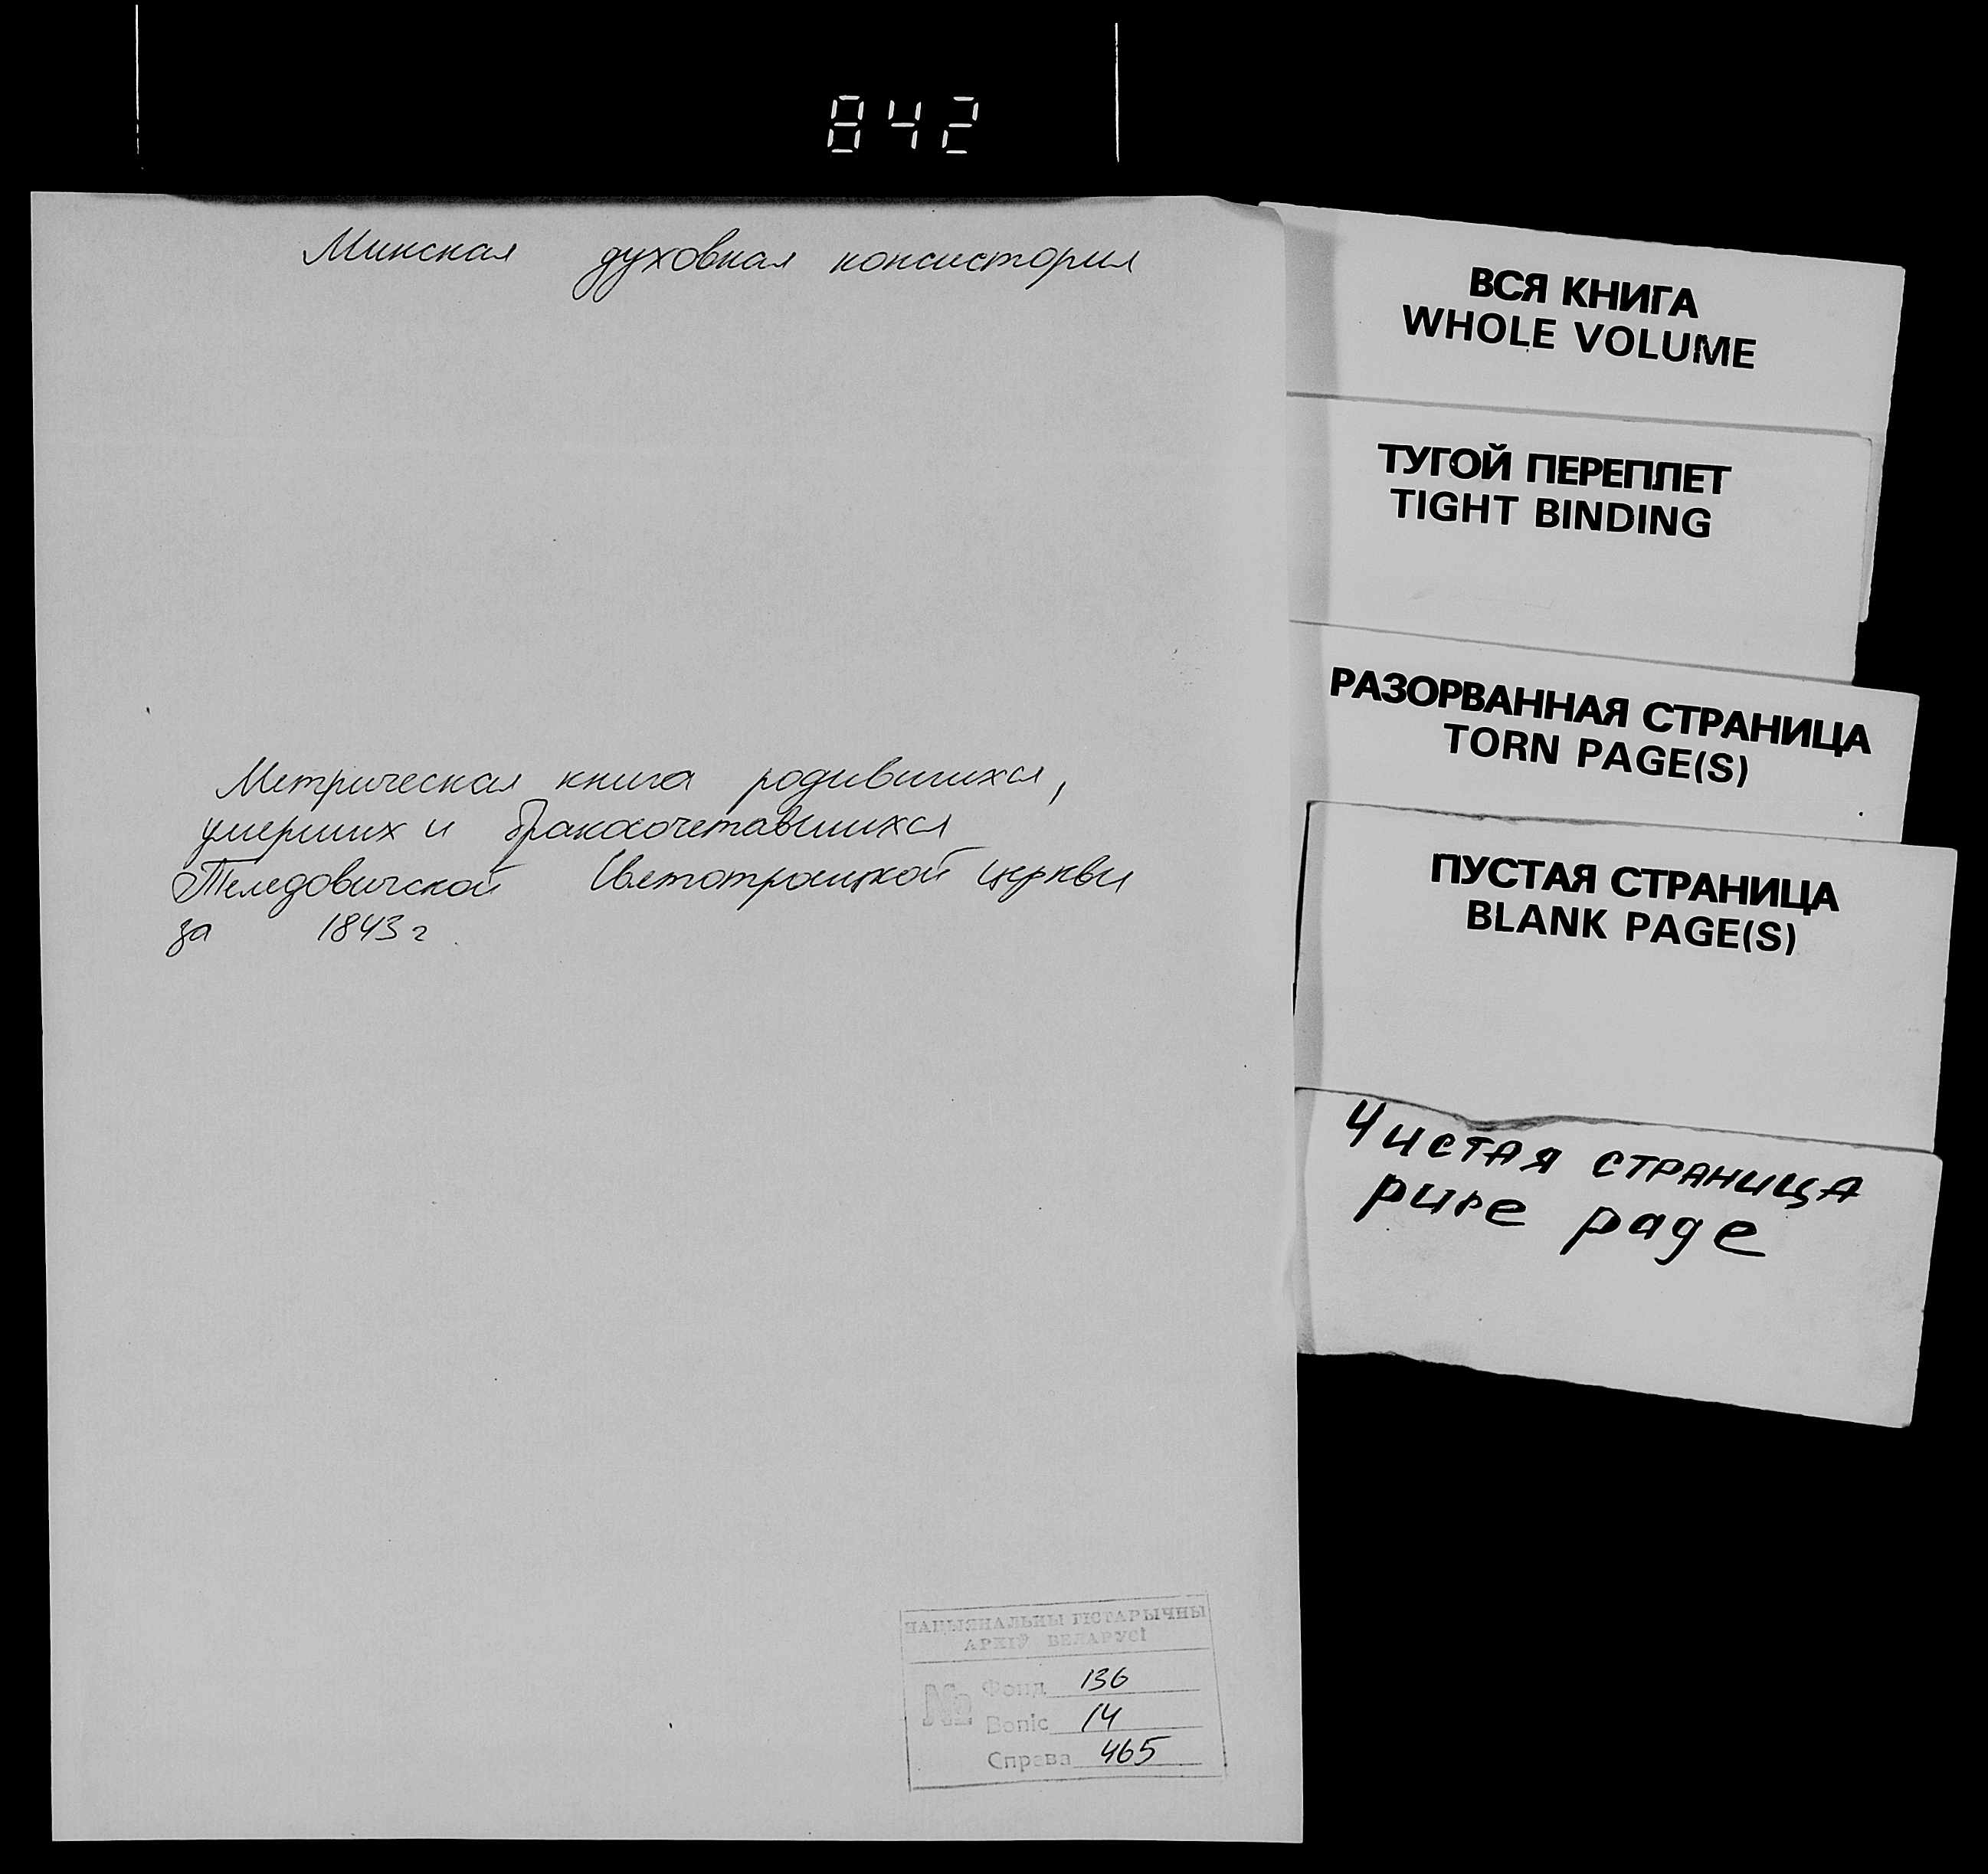 842
Минская духовная консистория
Метрическая книга родившихся,
умерших и бракосочетавшихся
Телядовичской Святотроицкой церкви
за 1843 г.
НАЦЫЯНАЛЬНЫ ГІСТАРЫЧНЫ
АРХІЎ БЕЛАРУСІ
№ Фонд 136
Вопіс 14
Справа 465
ВСЯ КНИГА
WHOLE VOLUME
ТУГОЙ ПЕРЕПЛЕТ
TIGHT BINDING
РАЗОРВАННАЯ СТРАНИЦА
TORN PAGE(S)
ПУСТАЯ СТРАНИЦА
BLANK PAGE(S)
Чистая страница
pure page